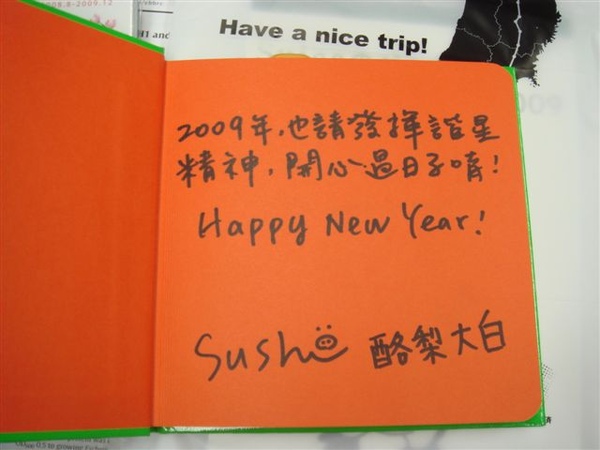 2008.8-2009.12
H1 and
Have a nice trip!
2009年,也請發揮諧星
精神,開心過日子唷!
Happy New Year!
Sushi 酪梨大白